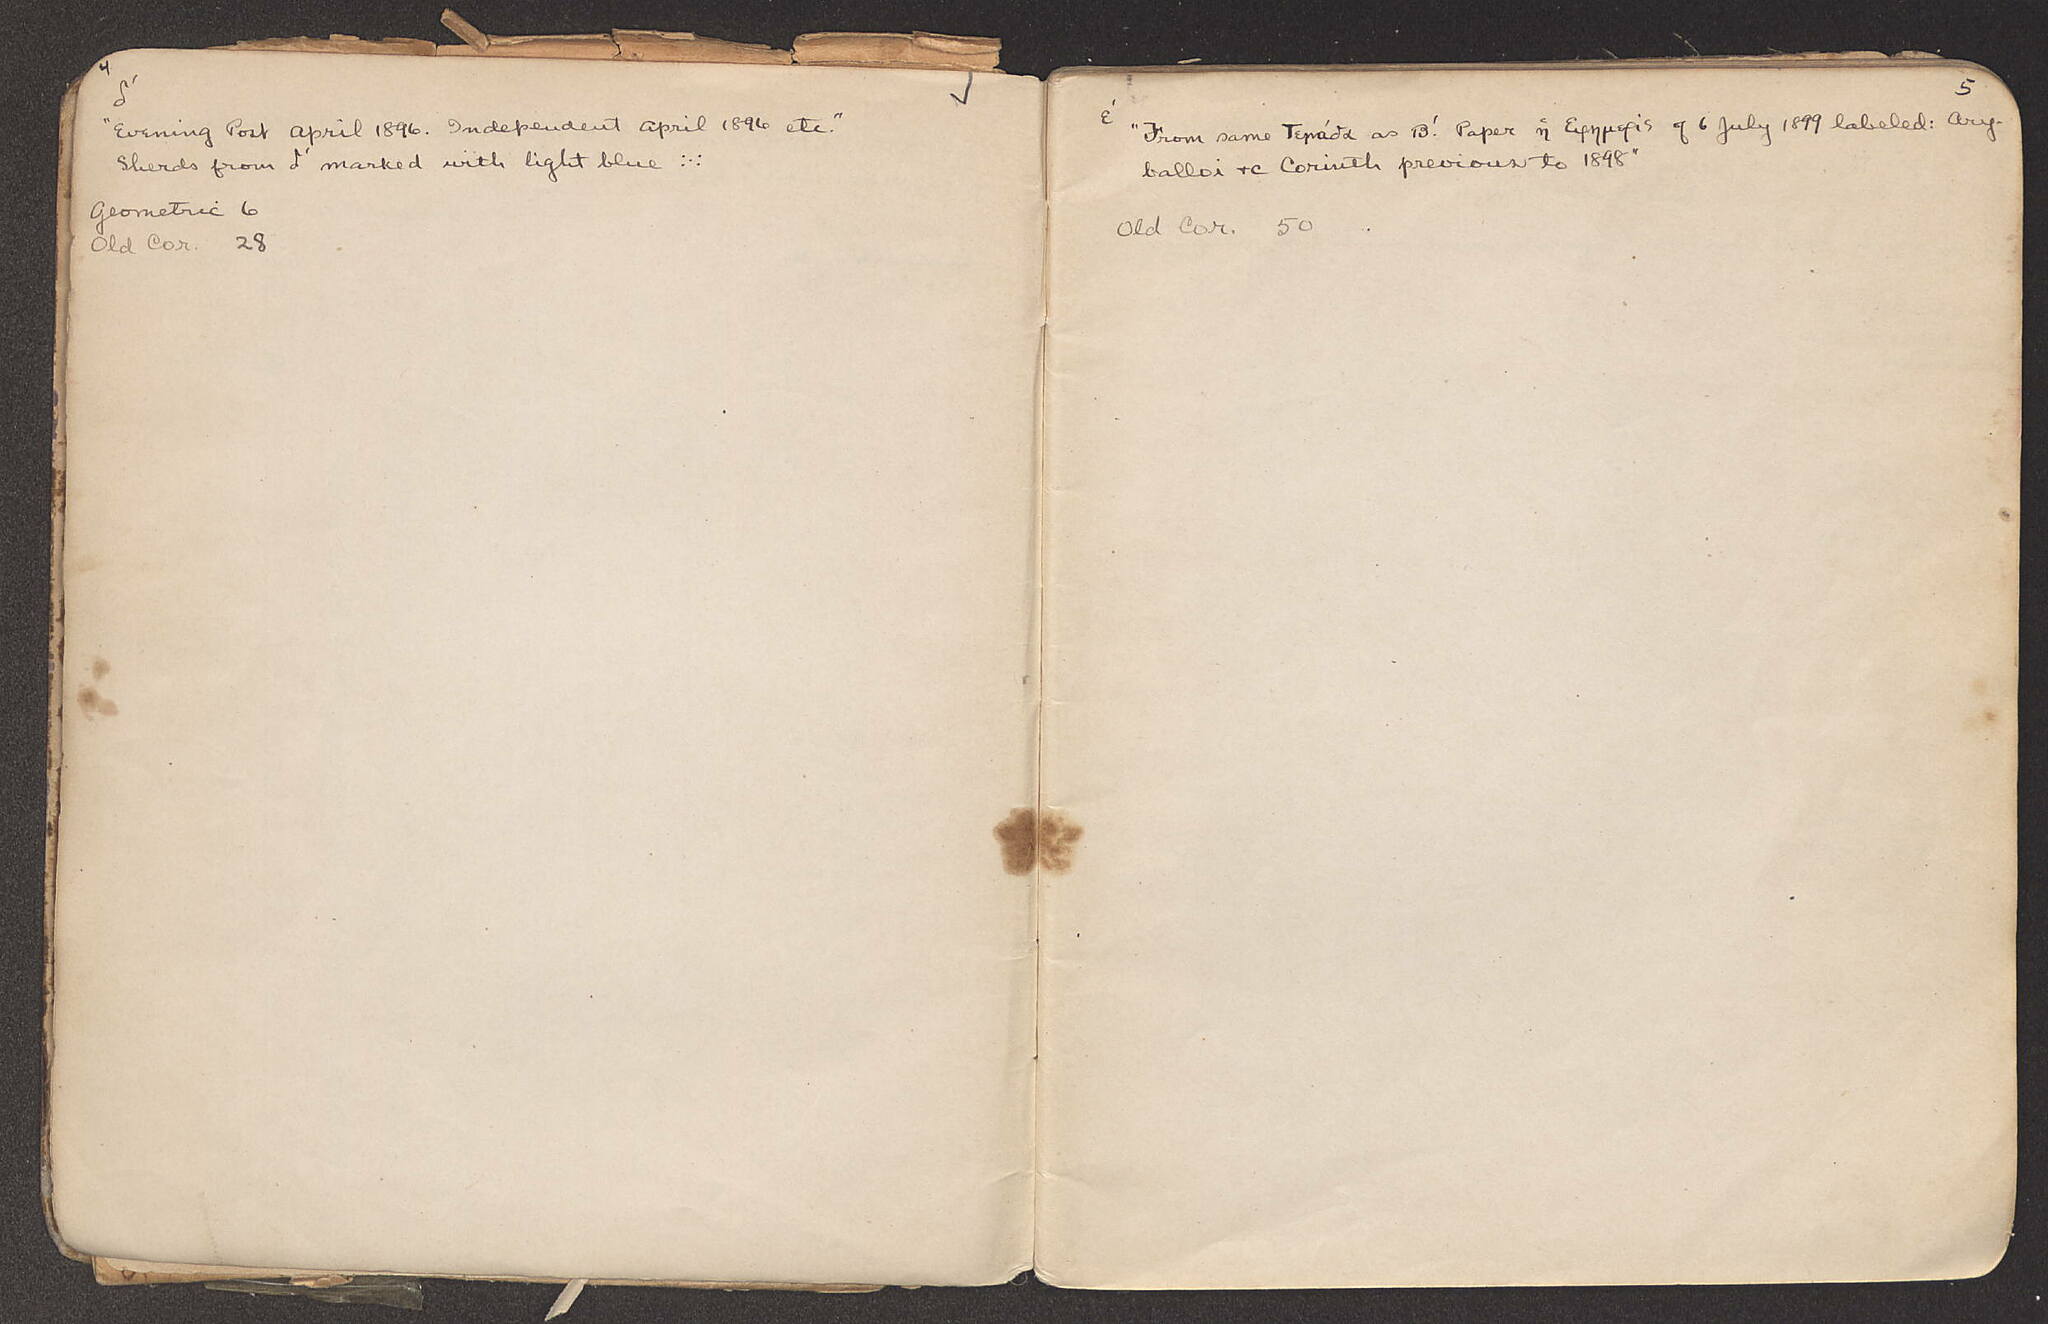 4
δ´
"Evening Post April 1896. Independent April 1896 etc."
Sherds from δ´ marked with light blue :·:
Geometric 6
Old Cor. 28
5
ε´
"From same as Β´. Paper ἡ Εφημερίς of 6 July 1899 labeled: Ary-
balloi +c Corinth previous to 1898"
Old Cor. 50